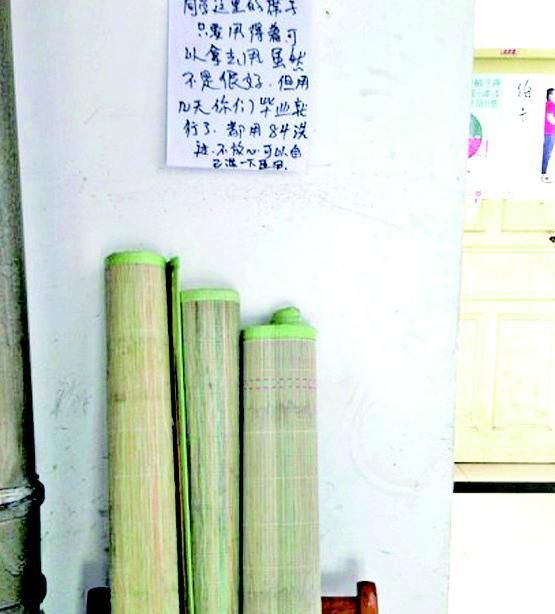 同学这里的席子
只要用得着可
以拿去用虽然
不是很好.但用
几天你们毕业就
行了.都用84洗
过.不放心可以自
己洗一下再用.